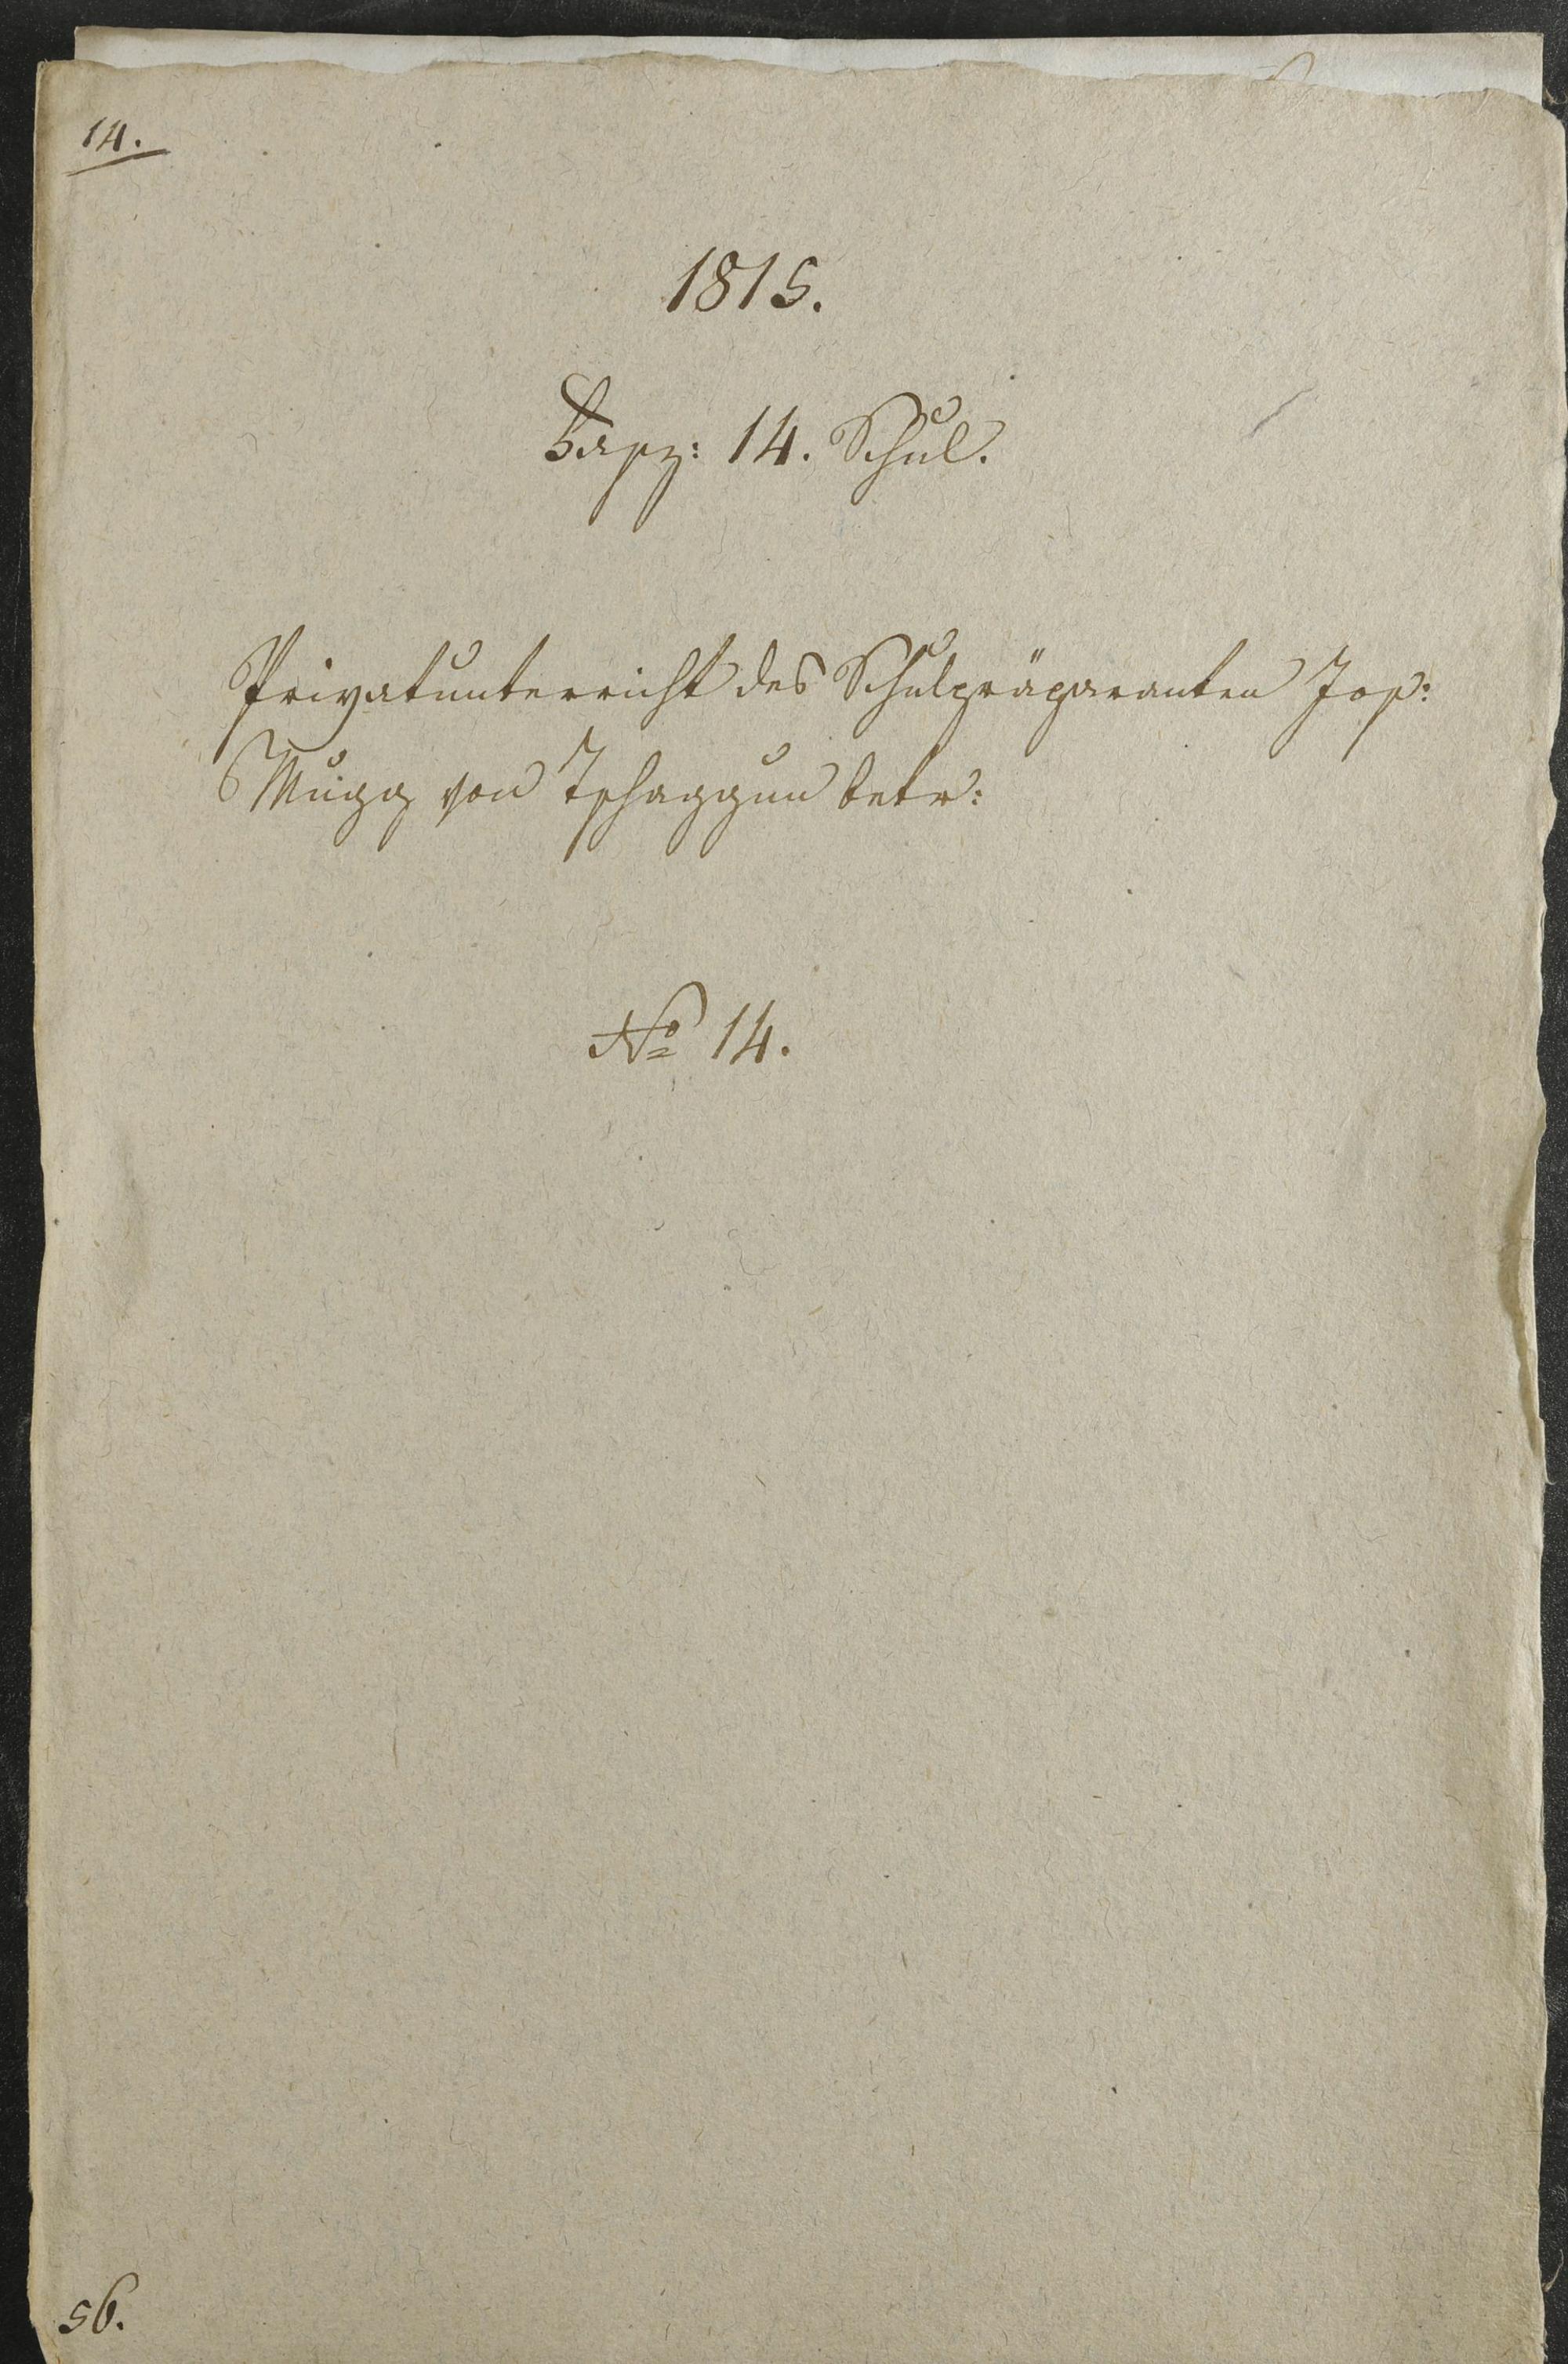 14.
1815.
Fasz: 14. Schul.
Privatunterricht des Schulpräparanten Jos:
Mugg von Tschaggun betr:
No 14.
56.